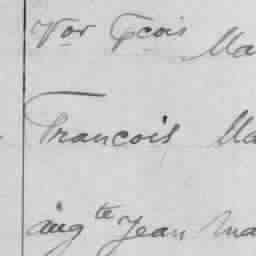 Vor Fcois Ma
Francois Ma
aug te Jean Ma